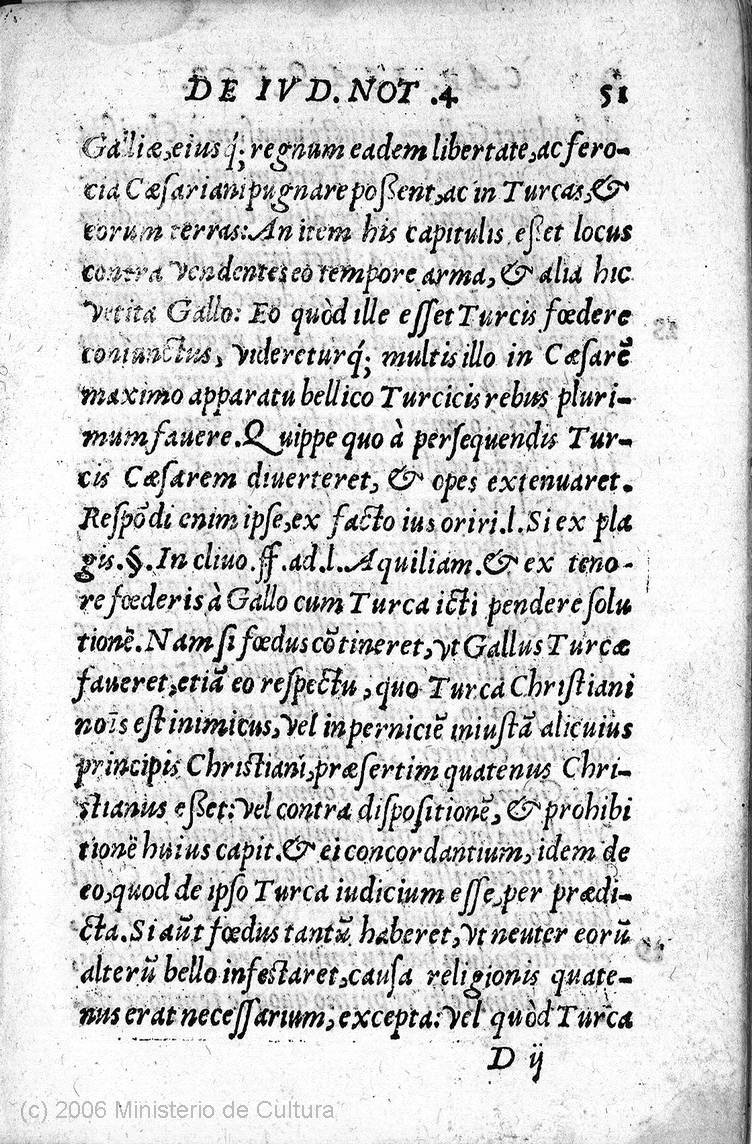 DE IVD. NOT .4 51
Galliæ, eius q́; regnum eadem libertate, ac fero-
cia Cæsariani pugnare poßent, ac in Turcas, &
eorum terras: An item his capitulis eßet locus
contra vendentes eo tempore arma, & alia hic
vetita Gallo: Eo quòd ille esset Turcis fœdere
coniunctus, videretur q́; multis illo in Cæsarē
maximo apparatu bellico Turcicis rebus pluri-
mum favere. Quippe quo à persequendis Tur-
cis Cæsarem diverteret, & opes extenuaret.
Respōdi enim ipse, ex facto ius oriri. l. Si ex pla
gis. §. In clivo. ff. ad. l. Aquiliam. & ex teno-
re fœderis à Gallo cum Turca icti pendere solu
tionē. Nam si fœdus cōtineret, vt Gallus Turcæ
faveret, etiā eo respectu, quo Turca Christiani
nois̄ est inimicus, vel in perniciē iniustā alicuius
principis Christiani, præsertim quatenus Chri-
stianus eßet: vel contra dispositionē, & prohibi
tionē huius capit. & ei concordantium, idem de
eo, quod de ipso Turca iudicium esse, per prædi-
cta. Si aūt fœdus tantū haberet, vt neuter eorū
alterū bello infestaret, causa religionis quate-
nus erat necessarium, excepta: vel quòd Turca
D ij
(c) 2006 Ministerio de Cultura